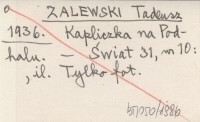 ZALEWSKI Tadeusz
1936. Kapliczka na Pod-
halu. — Świat 31, nr 10:
, il. Tylko fot.